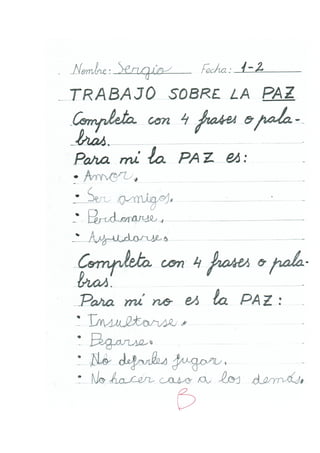 Nombre: Sergio Fecha: 1-2
TRABAJO SOBRE LA PAZ
Completa con 4 frases o pala-
bras.
Para mi la PAZ es:
• Amor.
• Ser amigos.
• Perdonarse.
• Ayudarse.
Completa con 4 frases o pala-
bras.
Para mí no es la PAZ:
• Insultarse.
• Pegarse.
• No dejarles jugar.
• No hacer caso a los demás.
B